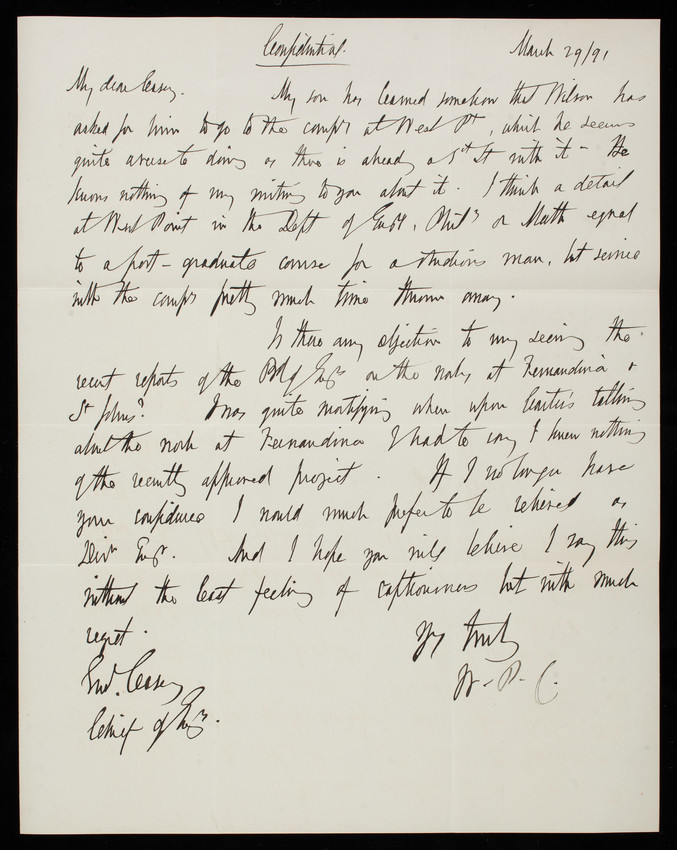 Confidential.
March 29/91
My dear Casey.
My son has learned somehow that Wilson has
asked for him to go to the comp'y at West Pt, which he seems
quite averse to doing as there is already a 1st Lt with it – He
knows nothing of my writing to you about it. I think a detail
at West Point in the Dept of Eng'g, Phil'y or Math equal
to a post-graduate course for a studious man, but service
with the comp'y pretty much time thrown away.
Is there any objection to my seeing the
recent reports of the Bd of Eng'rs on the works at Fernandina &
St Johns? I was quite mortifying when upon talking
about the work at Fernandina I had to say I knew nothing
of the recently approved project. If I no longer have
your confidence I would much prefer to be relieved as
Divn Engr. And I hope you will believe I say this
without the least feeling of captiousness but with much
regret.
Yrs truly
W. P. C.
Genl. Casey
Chief of Engrs.